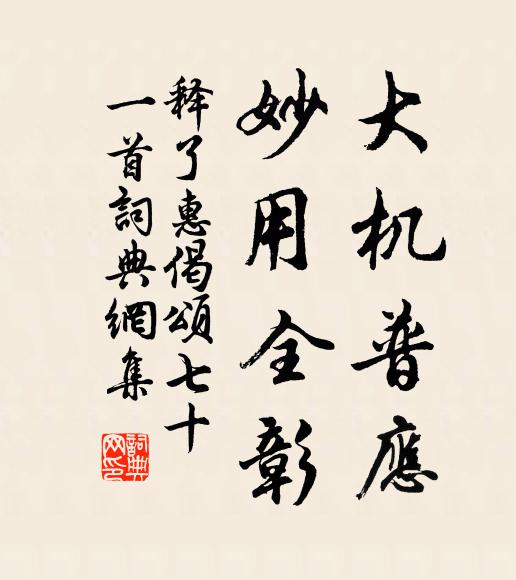 大机普應
妙用全彰
释了惠偈頌七十
一首詞典網集
詞典网印